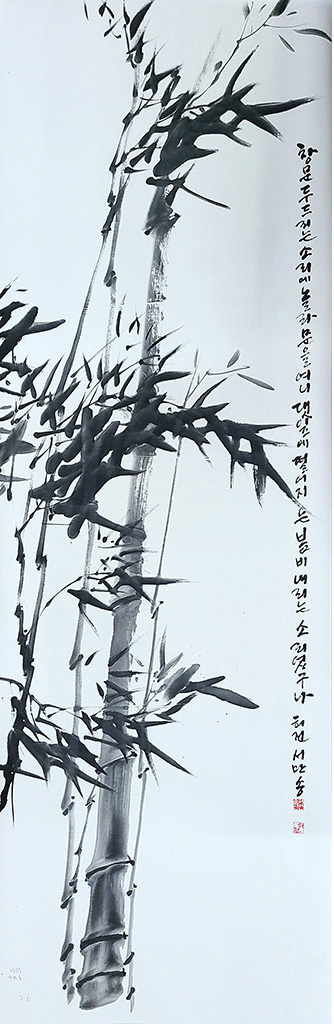 창문 두드리는 소리에 놀라 문을 여니 댓잎에 떨어지는 봄비 내리는 소리였구나 서만송